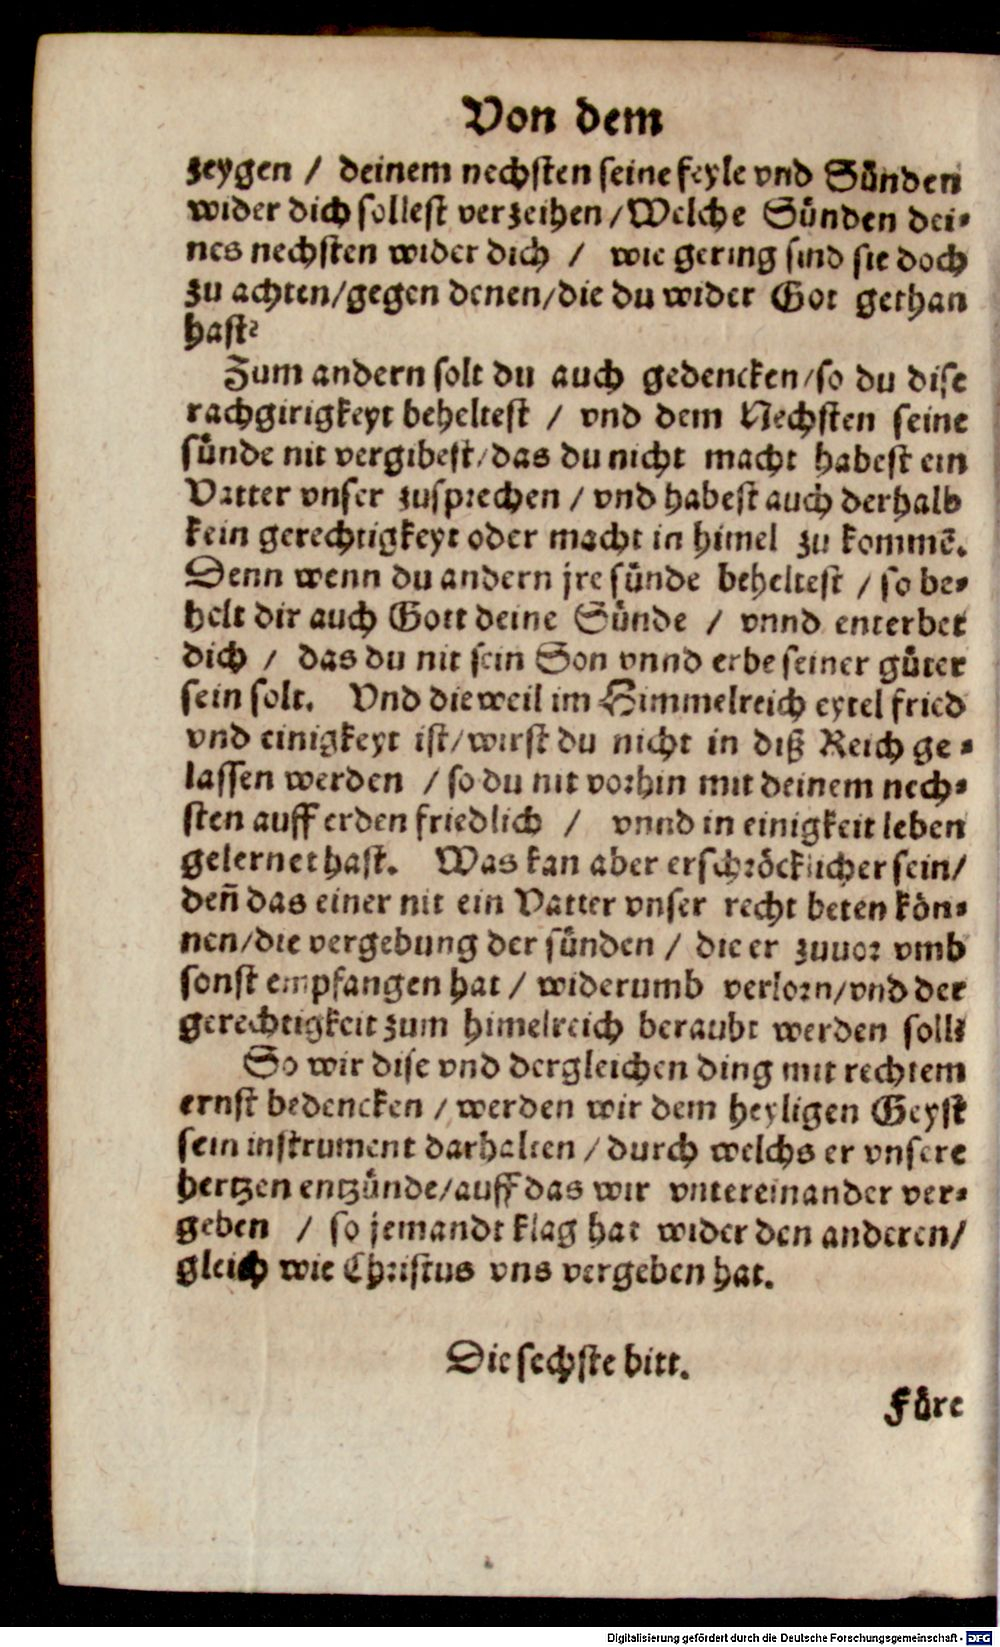 Von dem
zeygen / deinem nechsten seine feyle vnd Sünden
wider dich sollest verzeihen / Welche Sünden dei-
nes nechsten wider dich / wie gering sind sie doch
zu achten / gegen denen / die du wider Got gethan
hast?
Zum andern solt du auch gedencken / so du dise
rachgirigkeyt beheltest / vnd dem Nechsten seine
sünde nit vergibest / das du nicht macht habest ein
Vatter vnser zusprechen / vnd habest auch derhalb
kein gerechtigkeyt oder macht in himel zu kommẽ.
Denn wenn du andern jre sünde beheltest / so be-
helt dir auch Gott deine Sünde / vnnd enterbet
dich / das du nit sein Son vnnd erbe seiner güter
sein solt. Vnd dieweil im Himmelreich eytel fried
vnd einigkeyt ist / wirst du nicht in diß Reich ge-
lassen werden / so du nit vorhin mit deinem nech-
sten auff erden friedlich / vnnd in einigkeit leben
gelernet hast. Was kan aber erschröcklicher sein /
deñ das einer nit ein Vatter vnser recht beten kön-
nen / die vergebung der sünden / die er zuuor vmb
sonst empfangen hat / widerumb verlorn / vnd der
gerechtigkeit zum himelreich beraubt werden soll?
So wir dise vnd dergleichen ding mit rechtem
ernst bedencken / werden wir dem heyligen Geyst
sein instrument darhalten / durch welchs er vnsere
hertzen entzünde / auff das wir vntereinander ver-
geben / so jemandt klag hat wider den anderen /
gleich wie Christus vns vergeben hat.
Die sechste bitt.
Füre
Digitalisierung gefördert durch die Deutsche Forschungsgemeinschaft - DFG